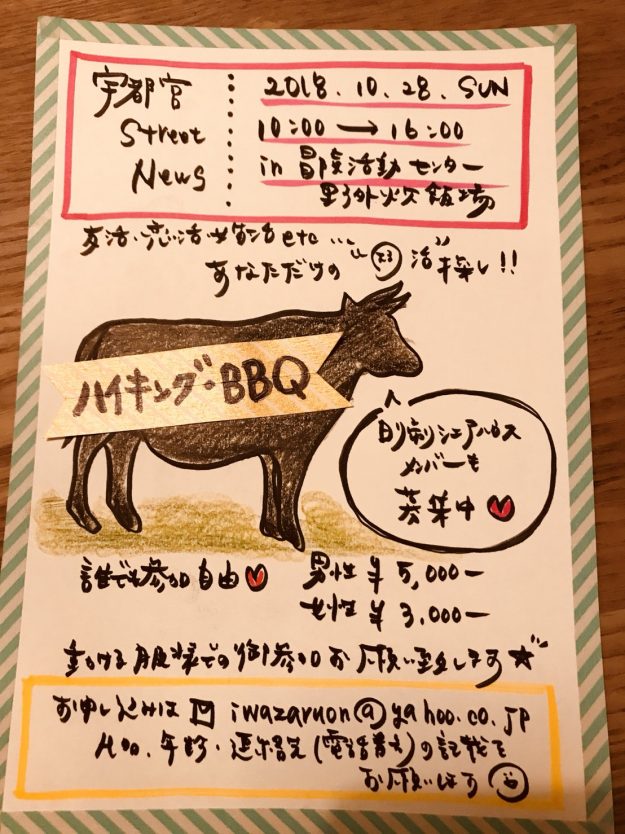 宇都宮
Street
News
2018.10.28.SUN
10:00→16:00
in 冒険活動センター
野外炊飯場
友活・恋活・婚活etc...
あなただけの "〇活" 探し!!
ハイキング・BBQ
シェアハウス
メンバーも
募集中
誰でも参加自由
男性 ¥5,000ー
女性 ¥3,000ー
動ける服装での御参加お願い致します☆
お申し込みは iwazaruon@yahoo.co.jp
年齢・連絡先(電話番号)の記載を
お願いします